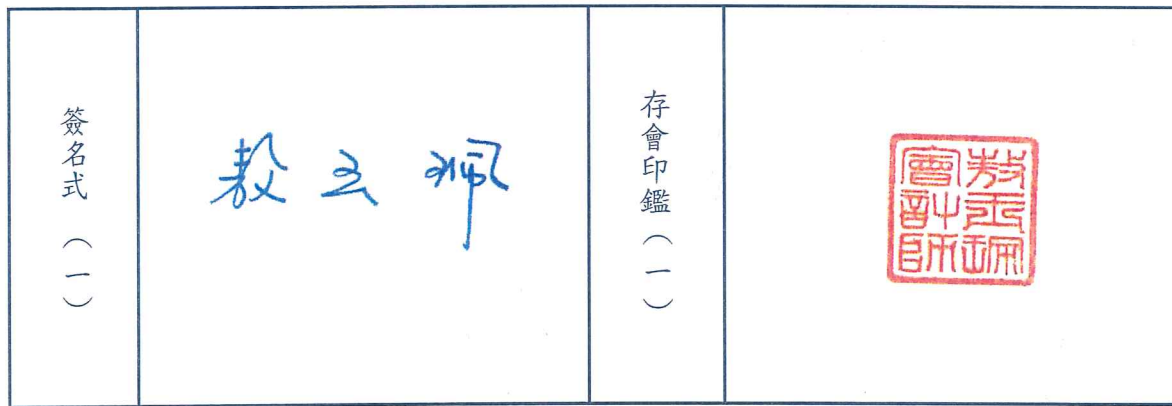 簽名式（一）
敖玉珮
存會印鑑（一）
敖玉珮
會計師